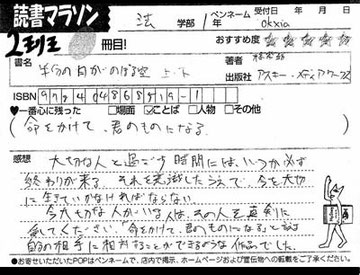 読書マラソン 法 学部 1年 ペンネーム okxia 受付日 年 月 日
2冊目! おすすめ度
書名 半分の月がのぼる空 上・下 著者 橋本紡
出版社 アスキー・メディアワークス
ISBN 9784048685191
♥一番心に残った □場面 ☑ことば □人物 □その他
(命をかけて、君のものになる。)
感想 大切な人と過ごす時間には、いつか必ず
終わりが来る。それを意識したうえで、今を大切
に生きていかなければならない。
今大切な人がいる人は、その人を真剣に
愛してください。「命をかけて、君のものになる」と
の相手に相対することができるような作品でした。
●お寄せいただいたPOPはペンネームで、店内で掲示、ホームページおよび宣伝物への転載をご了承ください。